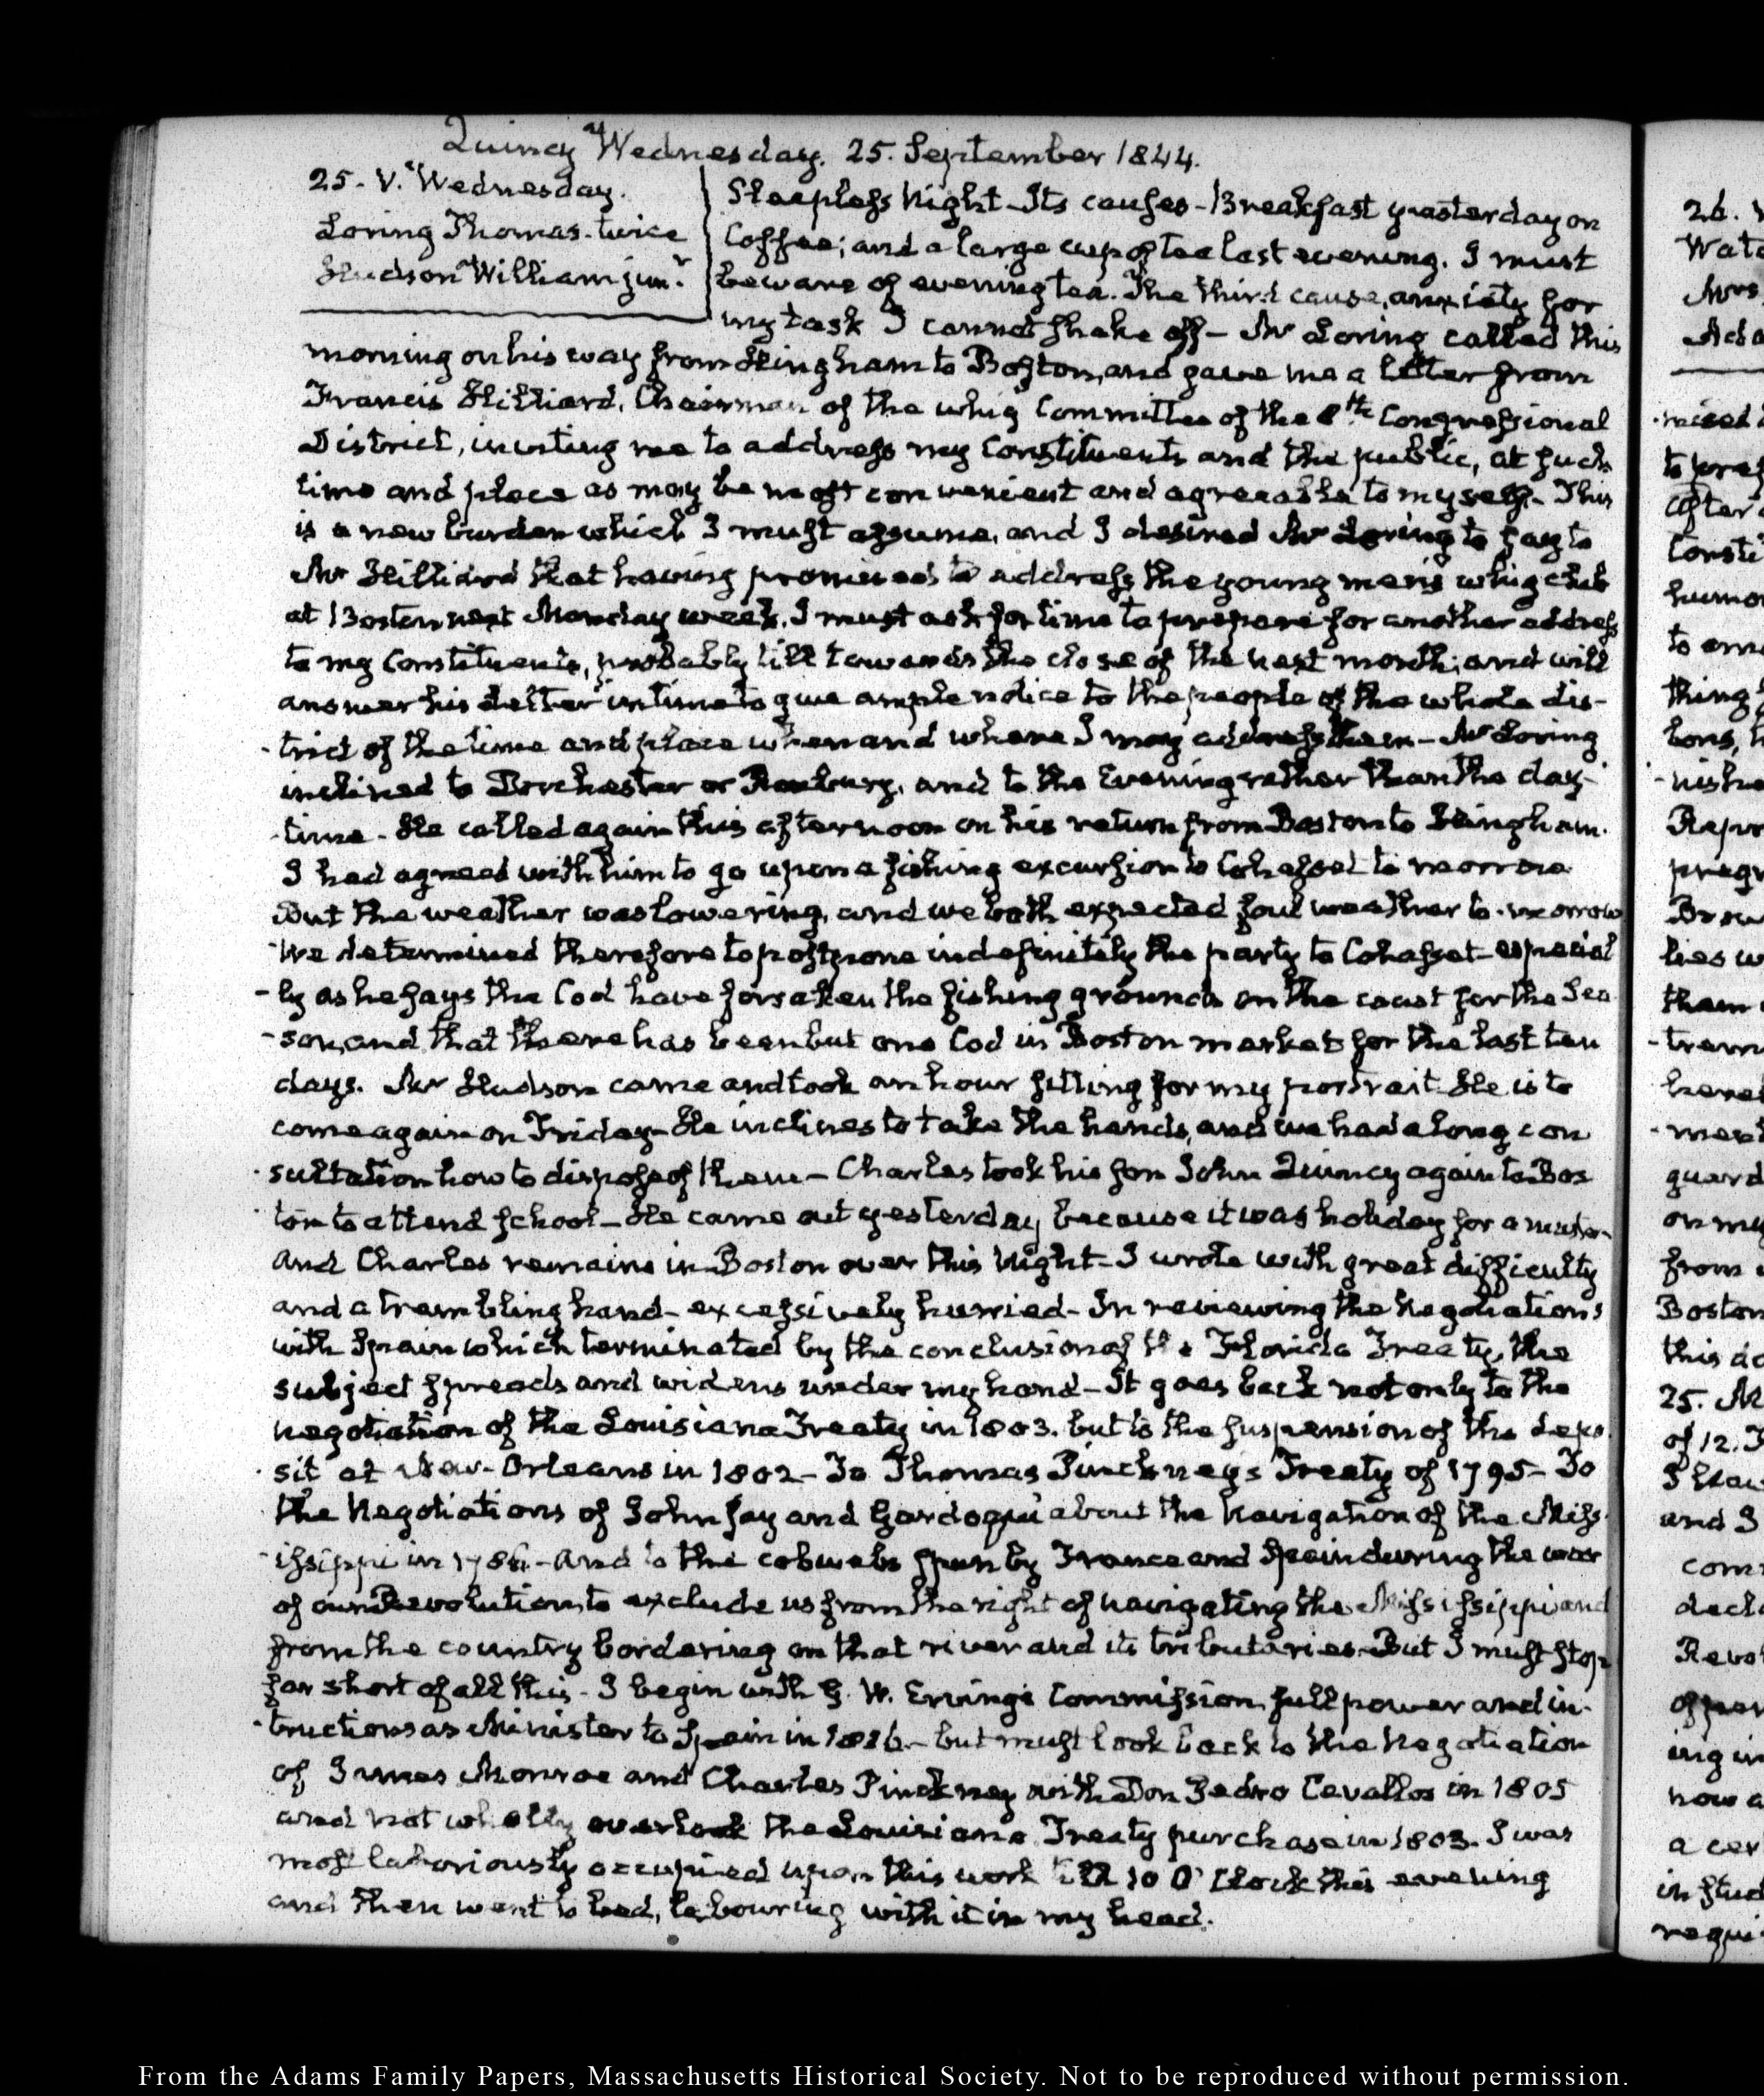 Quincy Wednesday. 25. September 1844.
25. V. Wednesday.
Loring Thomas. twice
Hudson William junr.
Sleepless Night - Its causes - Breakfast yesterday on
Coffee; and a large cup of tea last evening. I must
beware of evening tea. The third cause, anxiety for
my task I cannot shake off - Mr Loring called this
morning on his way from Hingham to Boston, and gave me a letter from
Francis Hilliard, Chairman of the whig Committee of the 8th. Congressional
District, inviting me to address my Constituents and the public, at such
time and place as may be most convenient and agreeable to myself - This
is a new burden which I must assume, and I desired Mr Loring to say to
Mr Hilliard that having promised to address the young men's whig club
at Boston next Monday week, I must ask for time to prepare for another address
to my Constituents, probably till towards the close of the next month; and will
answer his Letter in time to give ample notice to the people of the whole dis-
-trict of the time and place when and where I may address them - Mr Loring
inclined to Dorchester or Roxbury, and to the Evening rather than the day-
-time - He called again this afternoon on his return from Boston to Hingham.
I had agreed with him to go upon a fishing excursion to Cohasset to-morrow
but the weather was lowering, and we both expected foul weather to-morrow
We determined therefore to postpone indefinitely the party to Cohasset - especial
-ly as he says the Cod have forsaken the fishing grounds on the coast for the Sea
-son, and that there has been but one Cod in Boston market for the last ten
days. Mr Hudson came and took an hour sitting for my portrait. He is to
come again on Friday - He inclines to take the hands, and we had a long con
-sultation how to dispose of them - Charles took his son John Quincy again to Bos
-ton to attend school - He came out yesterday because it was holiday for a muster -
and Charles remains in Boston over this Night - I wrote with great difficulty
and a trembling hand - excessively hurried - In reviewing the Negotiations
with Spain which terminated by the conclusion of the Florida Treaty, the
subject spreads and widens under my hand - It goes back not only to the
negotiation of the Louisiana Treaty in 1803. but to the suspension of the depo
-sit at New-Orleans in 1802 - To Thomas Pinckney's Treaty of 1795 - To
the Negotiations of John Jay and Gardoqui about the Navigation of the Miss
-issippi in 1786 - and to the cobwebs spun by France and Spain during the war
of our Revolution to exclude us from the right of navigating the Mississippi and
from the country bordering on that river and its tributaries - But I must stop
far short of all this - I begin with G. W. Erving's Commission, full power and in-
-tructions as Minister to Spain in 1816 - but must look back to the Negotiation
of James Monroe and Charles Pinckney with Don Pedro Cevallos in 1805
and not wholly overlook the Louisiana Treaty purchase in 1803. I was
most laboriously occupied upon this work till 10 O'Clock this evening
and then went to bed, labouring with it in my head.
26.
Wate
Mrs
Ada
From the Adams Family Papers, Massachusetts Historical Society. Not to be reproduced without permission.